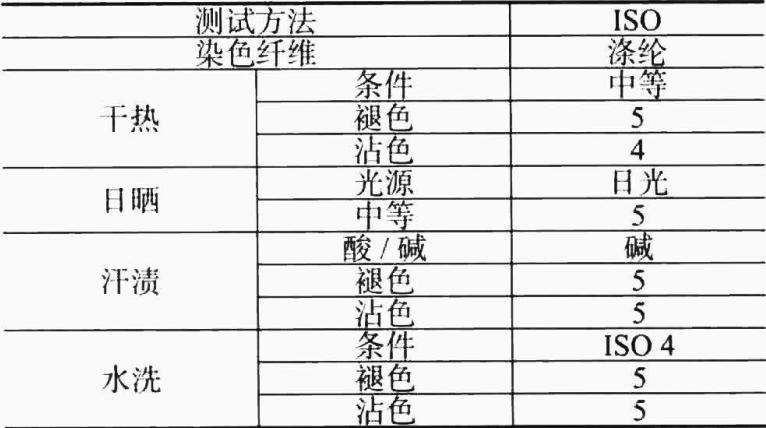 测试方法 ISO
染色纤维 涤纶
干热 条件 中等
褪色 5
沾色 4
日晒 光源 日光
中等 5
汗渍 酸/碱 碱
褪色 5
沾色 5
水洗 条件 ISO 4
褪色 5
沾色 5